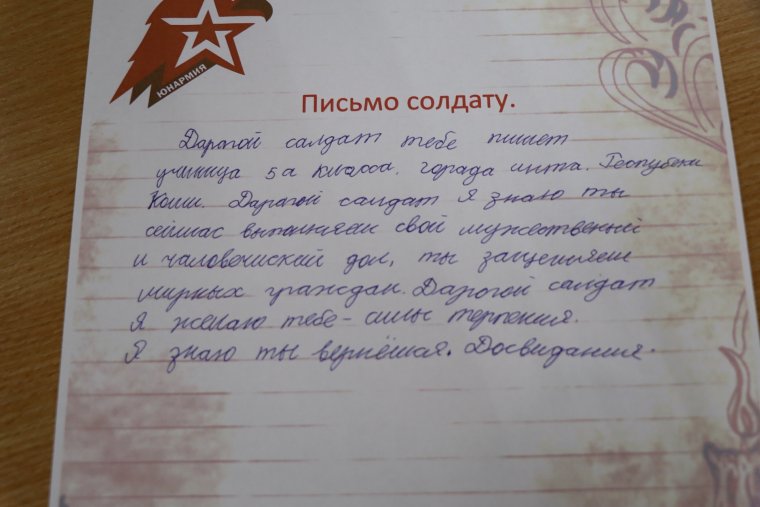 ЮНАРМИЯ
Письмо солдату.
Дарагой салдат тебе пишет
ученица 5а класса. города инта. Республеки
Коми. Дарагой салдат Я знаю ты
сейчас выполняеш свой мужественый
и чаловечиский дол, ты защещяеш
мирных граждан. Дарогой салдат
Я желаю тебе - силы терпения.
Я знаю ты вернёшая. Досвидания.